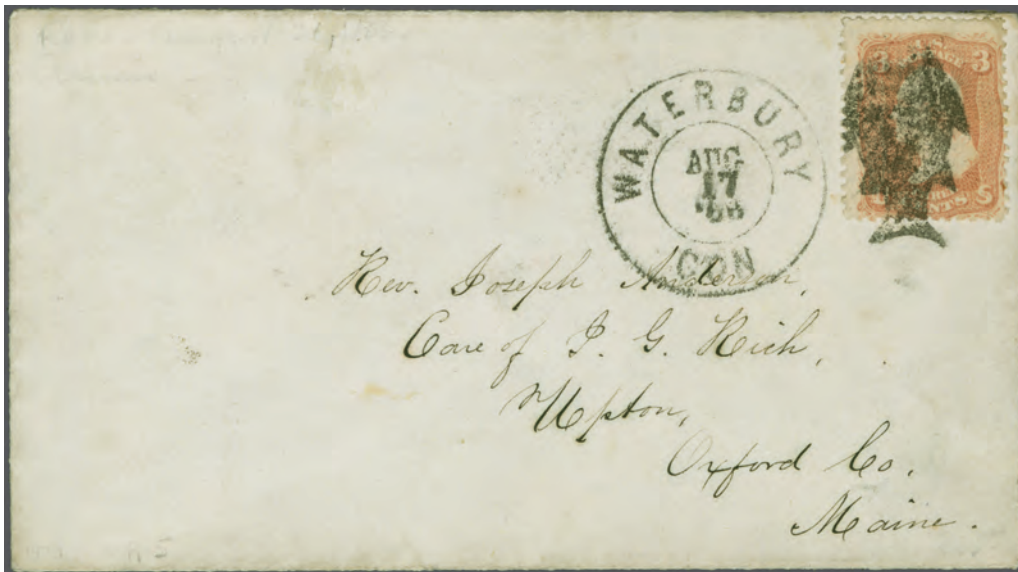 WATERBURY
AUG
17
CON
3
3
Rev. Joseph Anderson,
Care of J. G. Rich,
Upton,
Oxford Co.
Maine.